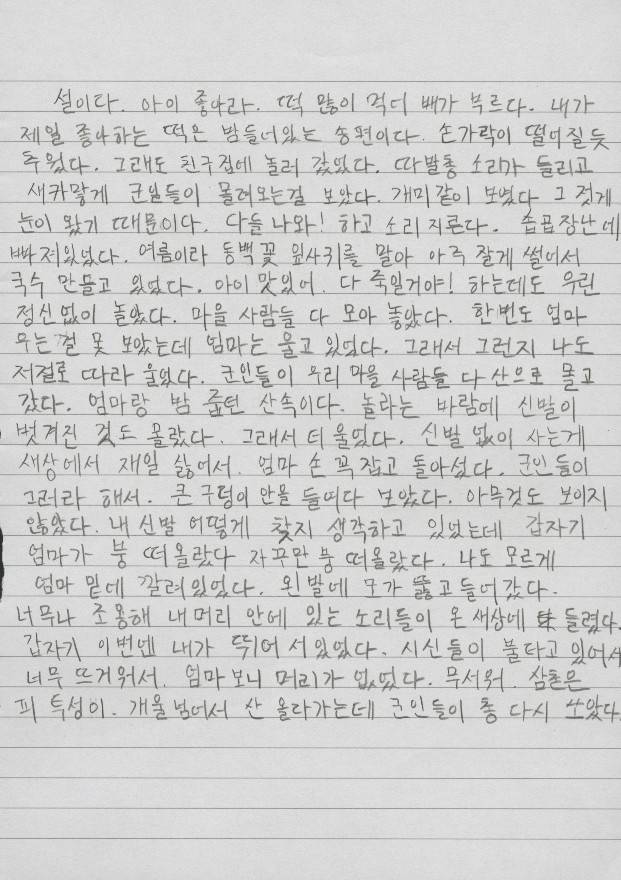 설이다. 아이 좋아라. 떡 많이 먹어 배가 부르다. 내가
제일 좋아하는 떡은 밤들어있는 송편이다. 손가락이 떨어질듯
추웠다. 그래도 친구집에 놀러 갔었다. 따발총 소리가 들리고
새카맣게 군인들이 몰려오는걸 보았다. 개미같이 보였다 그 젓게
눈이 왔기 때문이다. 다들 나와! 하고 소리 지른다. 소꿉장난에
빠져있었다. 여름이라 동백꽃 잎사귀를 말아 아주 잘게 썰어서
국수 만들고 있었다. 아이 맛있어. 다 죽일거야! 하는데도 우린
정신없이 놀았다. 마을 사람들 다 모아 놓았다. 한번도 엄마
우는걸 못 보았는데 엄마는 울고 있었다. 그래서 그런지 나도
저절로 따라 울었다. 군인들이 우리 마을 사람들 다 산으로 몰고
갔다. 엄마랑 밤 줍던 산속이다. 놀라는 바람에 신발이
벗겨진 것도 몰랐다. 그래서 더 울었다. 신발 없이 사는게
세상에서 재일 싫어서. 엄마 손 꼭 잡고 돌아섰다. 군인들이
그러라 해서. 큰 구덩이 안을 들여다 보았다. 아무것도 보이지
않았다. 내 신발 어떻게 찾지 생각하고 있었는데 갑자기
엄마가 붕 떠올랐다 자꾸만 붕 떠올랐다. 나도 모르게
엄마 밑에 깔려있었다. 왼발에 모가 뚫고 들어갔다.
너무나 조용해 내 머리 안에 있는 소리들이 온 세상에 들렸다.
갑자기 이번엔 내가 뛰어 서있었다. 시신들이 불타고 있어서
너무 뜨거워서. 엄마 보니 머리가 없었다. 무서워. 삼촌은
피 투성이. 개울 넘어서 산 올라가는데 군인들이 총 다시 쏘았다.